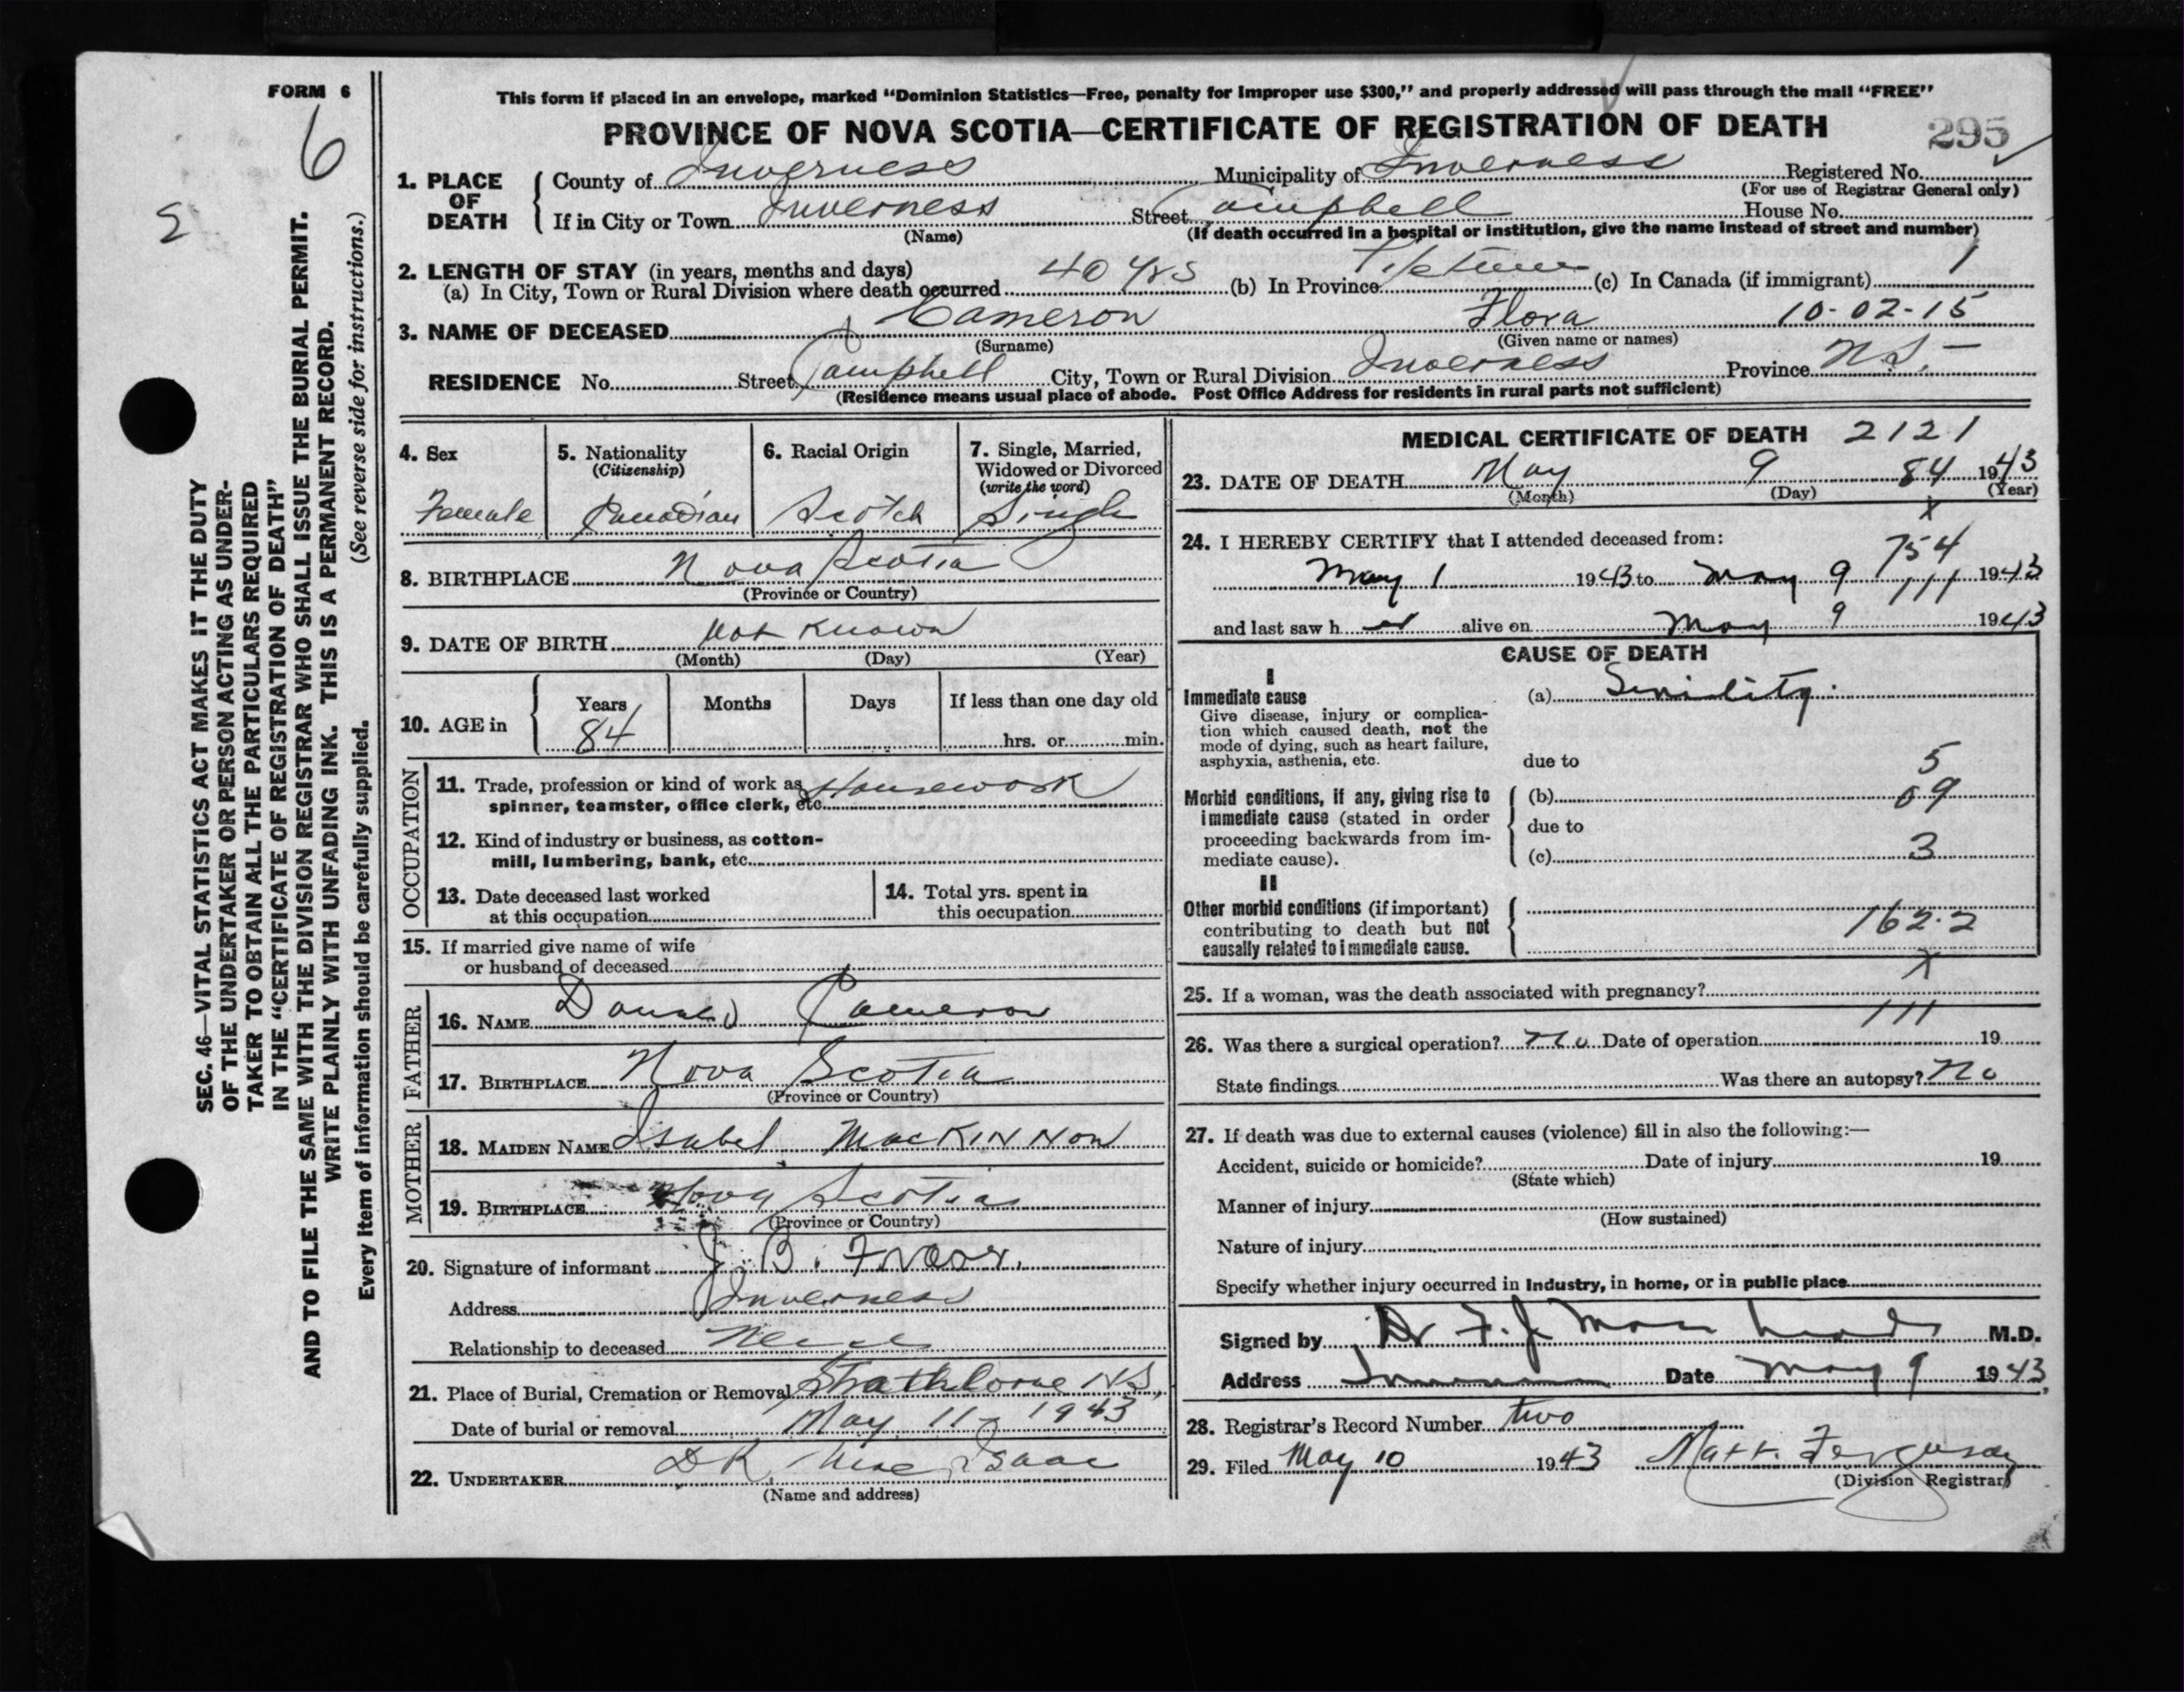 FORM 6
6
S
This form if placed in an envelope, marked “Dominion Statistics—Free, penalty for improper use $300,” and properly addressed will pass through the mail “FREE”
PROVINCE OF NOVA SCOTIA—CERTIFICATE OF REGISTRATION OF DEATH
295
1. PLACE OF DEATH
County of Inverness Municipality of Inverness Registered No.
(For use of Registrar General only)
If in City or Town Inverness Street Campbell House No.
(Name) (If death occurred in a hospital or institution, give the name instead of street and number)
2. LENGTH OF STAY (in years, months and days)
(a) In City, Town or Rural Division where death occurred 40 yrs (b) In Province Lifetime (c) In Canada (if immigrant) 1
3. NAME OF DECEASED Cameron Flora 10-02-15
(Surname) (Given name or names)
RESIDENCE No. Street Campbell City, Town or Rural Division Inverness Province N.S. —
(Residence means usual place of abode. Post Office Address for residents in rural parts not sufficient)
4. Sex Female
5. Nationality (Citizenship) Canadian
6. Racial Origin Scotch
7. Single, Married, Widowed or Divorced (write the word) Single
8. BIRTHPLACE Nova Scotia
(Province or Country)
9. DATE OF BIRTH Not Known
(Month) (Day) (Year)
10. AGE in Years 84 Months Days If less than one day old hrs. or min.
OCCUPATION
11. Trade, profession or kind of work as spinner, teamster, office clerk, etc. Housework
12. Kind of industry or business, as cotton-mill, lumbering, bank, etc.
13. Date deceased last worked at this occupation
14. Total yrs. spent in this occupation
15. If married give name of wife or husband of deceased
FATHER
16. NAME Donald Cameron
17. BIRTHPLACE Nova Scotia
(Province or Country)
MOTHER
18. MAIDEN NAME Isabel MacKinnon
19. BIRTHPLACE Nova Scotia
(Province or Country)
20. Signature of informant J. B.
Address Inverness
Relationship to deceased
21. Place of Burial, Cremation or Removal Strathlorne N.S.
Date of burial or removal May 11 - 1943
22. UNDERTAKER D R MacIsaac
(Name and address)
MEDICAL CERTIFICATE OF DEATH 2121
23. DATE OF DEATH May 9 84 1943
(Month) (Day) (Year)
x
24. I HEREBY CERTIFY that I attended deceased from:
754
May 1 1943 to May 9 111 1943
and last saw h er alive on May 9 1943
CAUSE OF DEATH
I
Immediate cause
Give disease, injury or complication which caused death, not the mode of dying, such as heart failure, asphyxia, asthenia, etc.
(a) Senility.
due to 5
Morbid conditions, if any, giving rise to immediate cause (stated in order proceeding backwards from immediate cause).
(b) 09
due to
(c) 3
II
Other morbid conditions (if important) contributing to death but not causally related to immediate cause.
162.2
x
25. If a woman, was the death associated with pregnancy?
111
26. Was there a surgical operation? No Date of operation 19
State findings Was there an autopsy? No
27. If death was due to external causes (violence) fill in also the following:—
Accident, suicide or homicide? Date of injury 19
(State which)
Manner of injury
(How sustained)
Nature of injury
Specify whether injury occurred in Industry, in home, or in public place
Signed by Dr F. J. M.D.
Address Date May 9 1943
28. Registrar's Record Number two
29. Filed May 10 1943 Ferguson
(Division Registrar)
SEC. 46—VITAL STATISTICS ACT MAKES IT THE DUTY
OF THE UNDERTAKER OR PERSON ACTING AS UNDER-
TAKER TO OBTAIN ALL THE PARTICULARS REQUIRED
IN THE “CERTIFICATE OF REGISTRATION OF DEATH”
AND TO FILE THE SAME WITH THE DIVISION REGISTRAR WHO SHALL ISSUE THE BURIAL PERMIT.
WRITE PLAINLY WITH UNFADING INK. THIS IS A PERMANENT RECORD.
Every item of information should be carefully supplied. (See reverse side for instructions.)